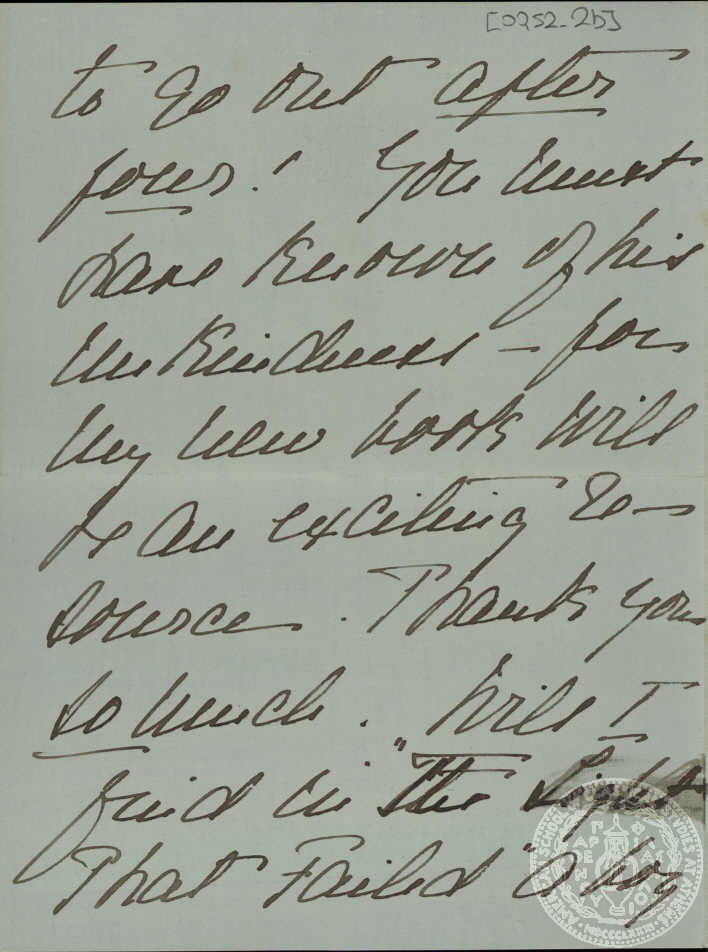 [0252_2b]
to go out after
four! You must
have known of his
unkindness – for
my new book will
be an exciting re-
source. Thank you
so much. Will I
find in "The Light
That Failed" a boy